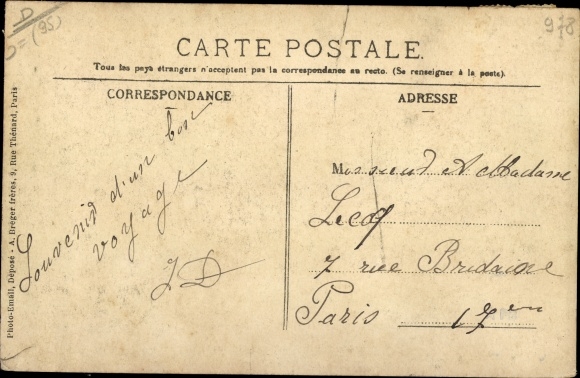 D
D=(95)
978
CARTE POSTALE.
Tous les pays étrangers n'acceptent pas la correspondance au recto. (Se renseigner à la poste).
CORRESPONDANCE
ADRESSE
Souvenir d'un bon
voyage
J D
Monsieur et Madame
Lecoq
7 rue Bridaine
Paris 17em
Photo-Email, Déposé - A. Bréger frères, 9, Rue Thénard, Paris